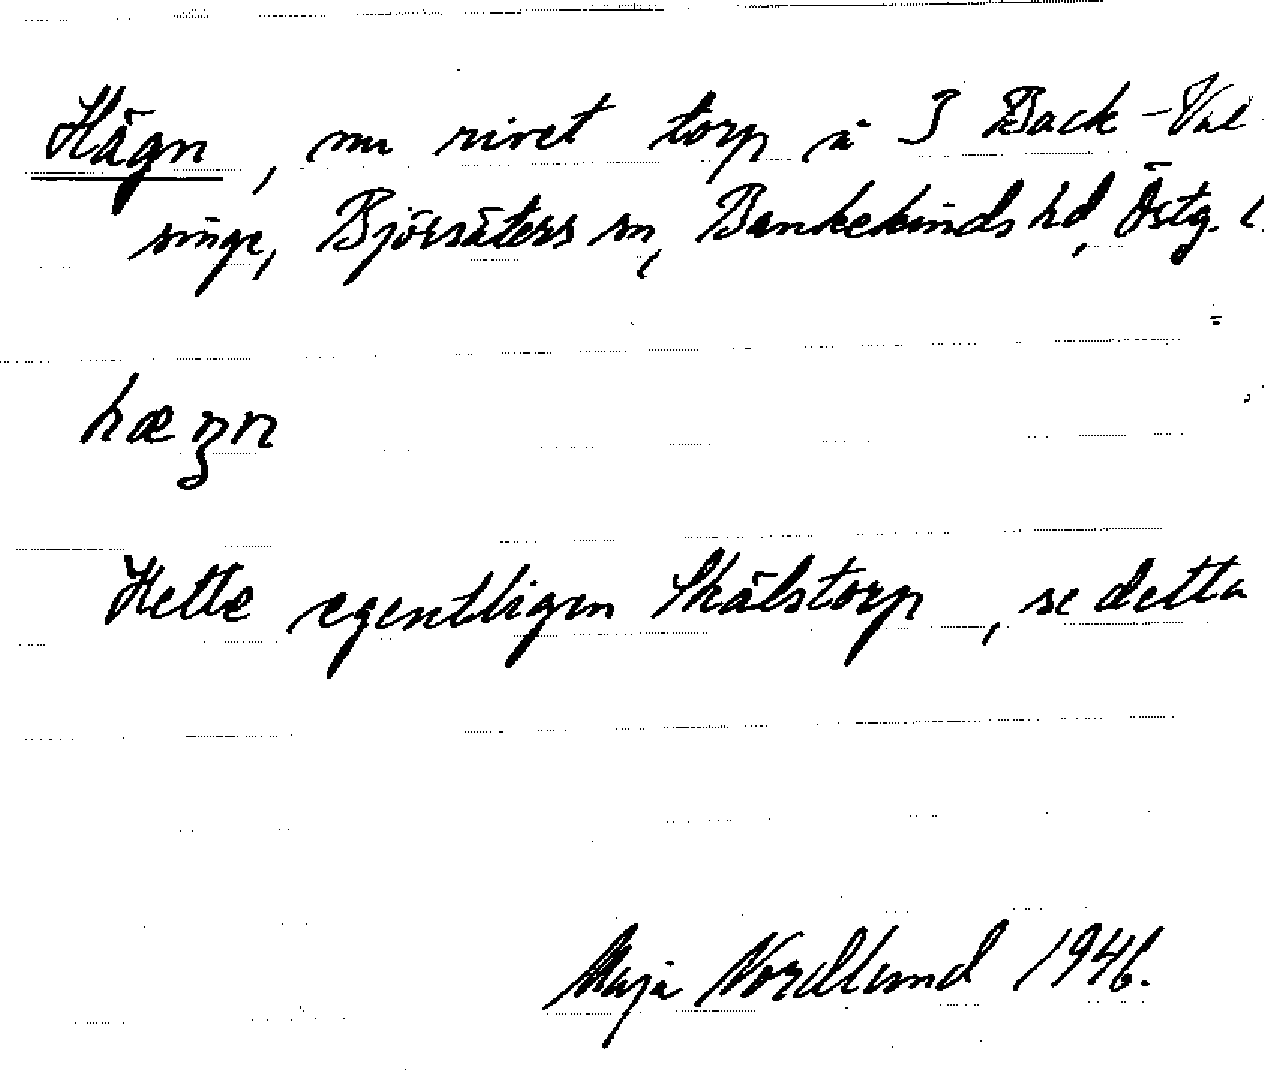 Hägn, nu rivet torp å S Back-Val-
singe, Björsäters sn, Bankekinds hd, Östg. l.
hæŋn
Hette egentligen Skålstorp, se detta
Maja Nordlund 1946.